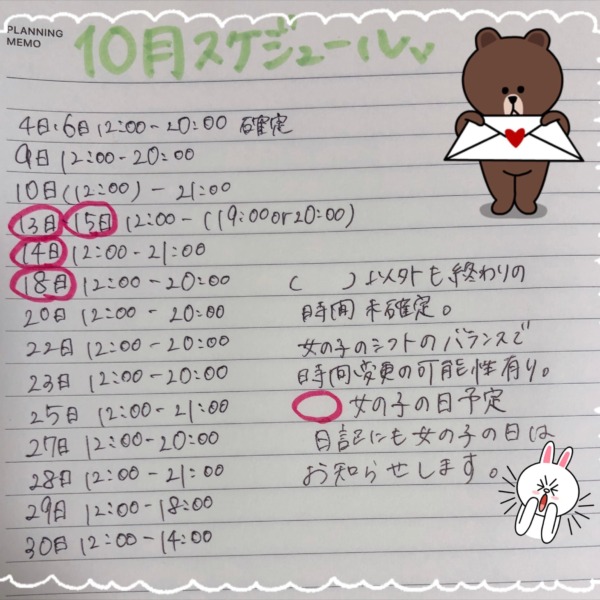 PLANNING
MEMO
10月スケジュール
4日・6日 12:00-20:00 確定
9日 12:00-20:00
10日(12:00)-21:00
13日 15日 12:00-(19:00or20:00)
14日 12:00-21:00
18日 12:00-20:00
20日 12:00-20:00
22日 12:00-20:00
23日 12:00-20:00
25日 12:00-21:00
27日 12:00-20:00
28日 12:00-21:00
29日 12:00-18:00
30日 12:00-14:00
( )以外も終わりの
時間未確定。
女の子のシフトのバランスで
時間変更の可能性有り。
女の子の日予定
日記にも女の子の日は
お知らせします。